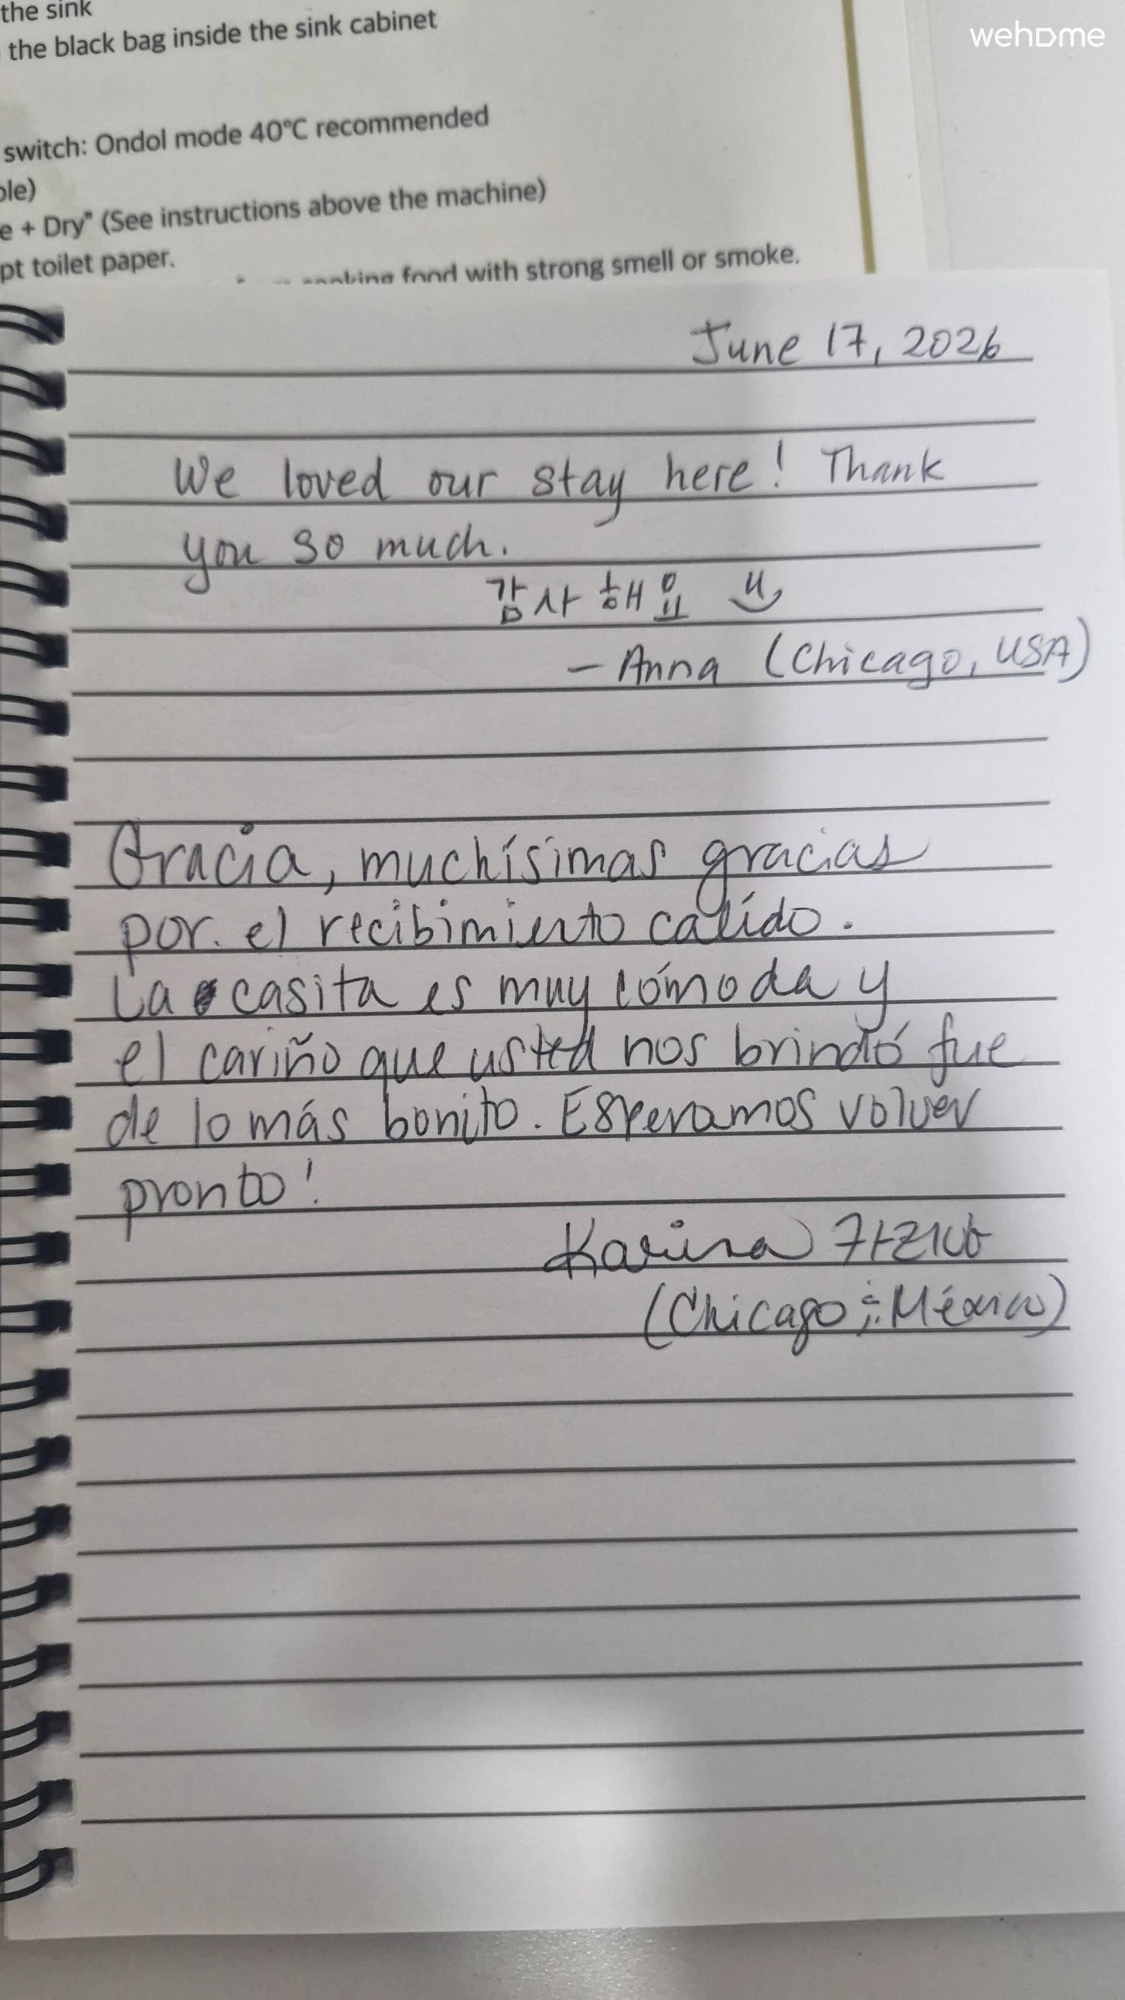 wehome
the sink
the black bag inside the sink cabinet
switch: Ondol mode 40°C recommended
ble)
e + Dry" (See instructions above the machine)
pt toilet paper.
cooking food with strong smell or smoke.
June 17, 2026
We loved our stay here! Thank
you so much.
감사해요
- Anna (Chicago, USA)
Gracia, muchísimas gracias
por el recibimiento calído.
La casita es muy cómoda y
el cariño que usted nos brindó fue
de lo más bonito. Esperamos volver
pronto!
Karina
(Chicago ; México)